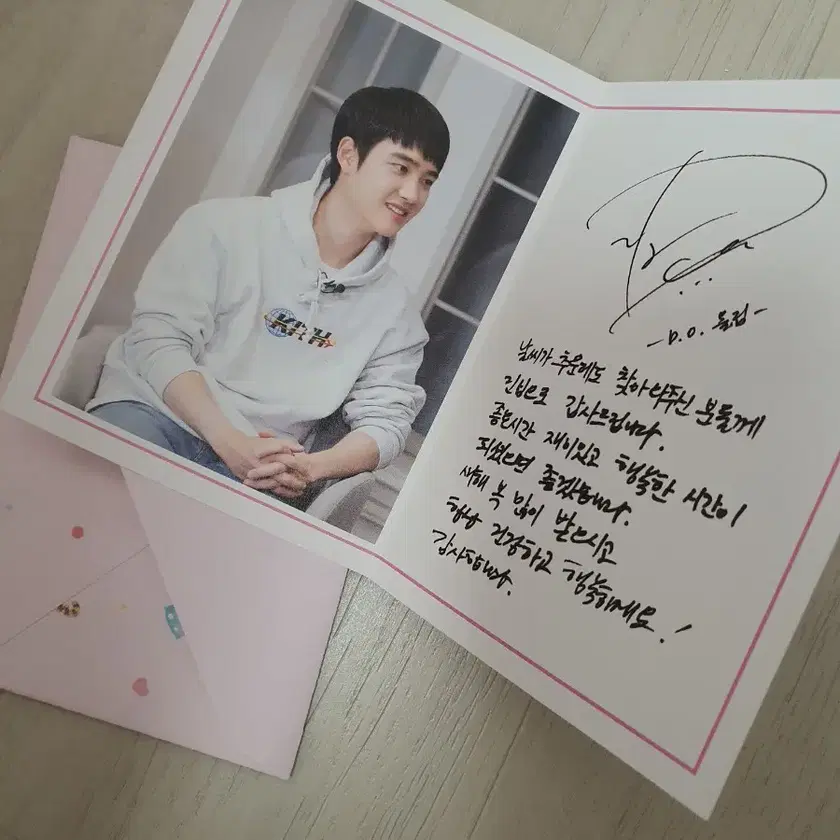 KITH
-D.O. 드림-
날씨가 추운데도 찾아와주신 분들께
진심으로 감사드립니다.
좋은시간 재미있고 행복한 시간이
되셨으면 좋겠습니다.
새해 복 많이 받으시고
항상 건강하고 행복하세요!
감사합니다.